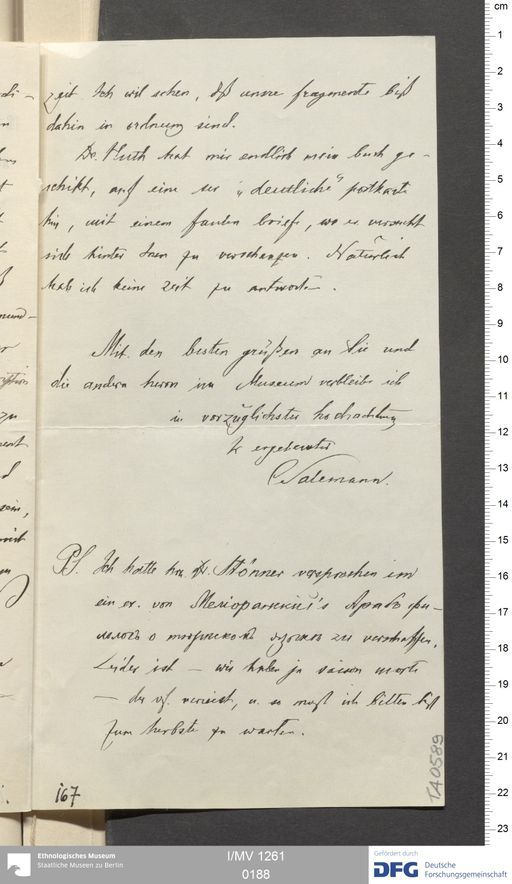 zeit Ich wil sehen, dß unsre fragmente biß
dahin in ordnung sind.
Dr. Huth hat mir endlich mein buch ge-
schikt, auf eine ser „deutliche“ postkarte
hin, mit einem faulen briefe, wo er versucht
sich hinter Inen zu verschanzen. Natürlich
hab ich keine zeit zu antworten.
Mit den besten grüßen an Sie und
die andern herren im Museum verbleibe ich
in vorzüglichster hochachtung
Ir ergebenster
CSalemann.
PS. Ich hatte hrn Dr. Stönner versprochen im
ein ex. von Меліоранскій's Арабъ фи-
лологъ о турецкомъ языкѣ zu verschaffen.
Leider ist – wir haben ja saison morte
– der vf. verreist, u. so muß ich bitten biß
zum herbste zu warten.
167
TA0589
Ethnologisches Museum
Staatliche Museen zu Berlin
I/MV 1261
0188
Gefördert durch
DFG
Deutsche
Forschungsgemeinschaft
cm
1
2
3
4
5
6
7
8
9
10
11
12
13
14
15
16
17
18
19
20
21
22
23